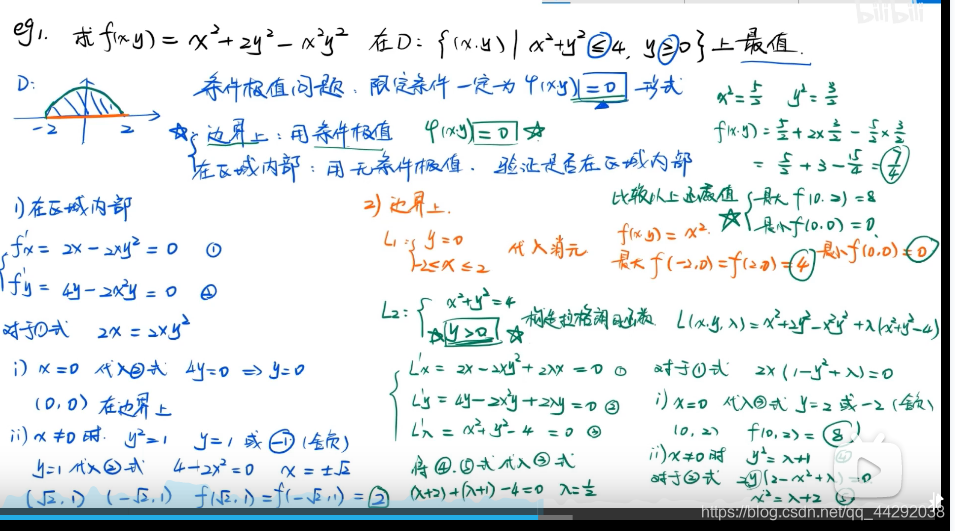 eg1. 求f(x·y) = x²+2y²-x²y² 在D:{(x·y)|x²+y²≤4, y≥0}上最值.
D:
-2 2
条件极值问题. 限定条件一定为φ(x·y)=0形式
☆ 边界上:用条件极值 φ(x·y)=0 ☆
在区域内部:用无条件极值. 验证是否在区域内部
x²=5/2 y²=3/2
f(x·y)=5/2+2×3/2-5/2×3/2
=5/2+3-15/4=7/4
比较以上还成值
☆ 最大 f(0.2)=8
最小f(0.0)=0.
1)在区域内部
f'x = 2x-2xy²=0 ①
f'y = 4y-2x²y=0 ②
对于①式 2x=2xy²
i) x=0 代入②式 4y=0 ⇒ y=0
(0,0) 在边界上
ii) x≠0时. y²=1 y=1 或 -1 (舍负)
y=1代入②式 4-2x²=0 x=±√2
(√2,1) (-√2,1) f(√2,1)=f(-√2,1)=2
2) 边界上.
L1: y=0
-2≤x≤2
代入消元
f(x,y)=x².
最大f(-2,0)=f(2,0)=4 最小f(0,0)=0
L2: x²+y²=4
☆ y>0 ☆
构造拉格朗日函数 L(x,y,λ)=x²+2y²-x²y²+λ(x²+y²-4)
L'x = 2x-2xy²+2λx=0 ①
L'y = 4y-2x²y+2λy=0 ②
L'λ = x²+y²-4=0 ③
得④.⑤式代入③式
(λ+2)+(λ+1)-4=0 λ=1/2
对于①式 2x(1-y²+λ)=0
i) x=0 代入③式 y=2 或-2 (舍负)
(0,2) f(0,2)=8
ii) x≠0时 y²=λ+1
对于②式 2y(2-x²+λ)=0
x²=λ+2 ⑤
bilibili
https://blog.csdn.net/qq_44292038